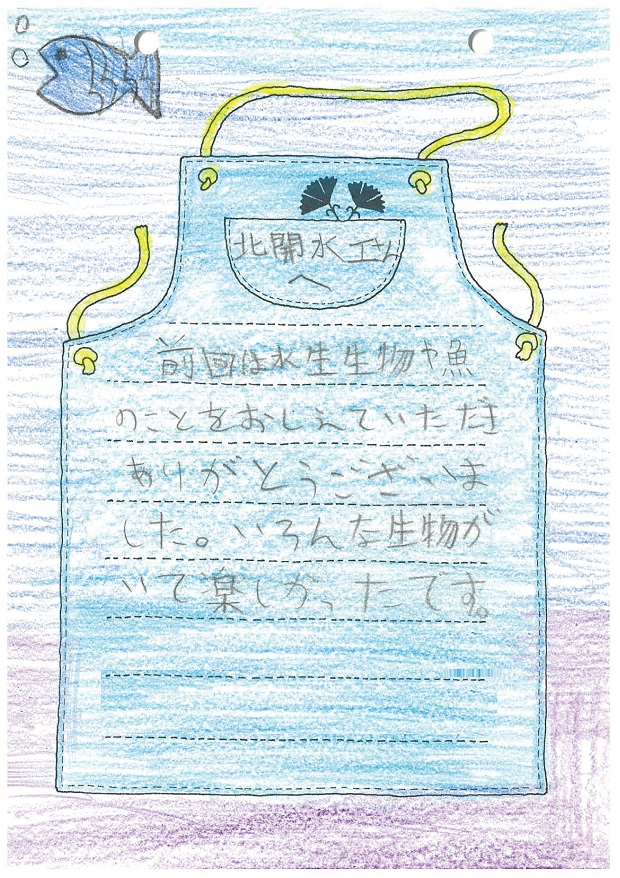 北開水工さん
へ
前回は水生生物や魚
のことをおしえていただき
ありがとうございま
した。いろんな生物が
いて楽しかったです。